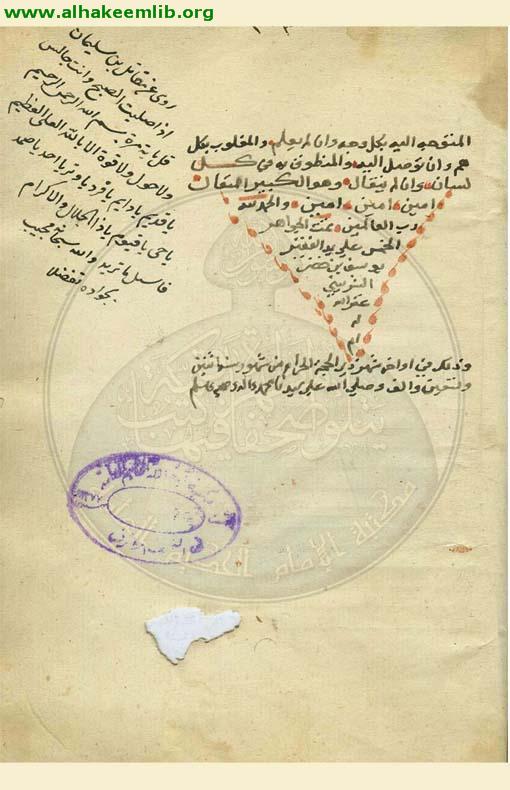 www.alhakeemlib.org
روي عن مقاتل بن سليمان
اذا صليت الصبح وانت جالس
قل ماية مرة بسم الله الرحمن الرحيم
ولا حول ولا قوة الا بالله العلي العظيم
يا قديم يا دايم يا فرد يا وتر يا احد يا صمد
يا حي يا قيوم يا ذا الجلال والاكرام
فاسل ما تريد والله سبحانه يجيب
بجوده تفضلا
المتوجه اليه بكل وجه وان لم يعلم والمقلوب بكل
هم وان توصل اليه والمنطوق به في كل
لسان وان لم يقال وهو الكبير المتعال
امين امين امين والحمد لله
رب العالمين تمت الجواهر
الخمس علي يد الفقير
يوسف بن خضر
الشربيني
غفر الله
له
ام
وذلك في اواخر شهر ذي الحجة الحرام من شهور سنة
وتسعين والف وصلي الله علي سيدنا محمد واله وصحبه وسلم